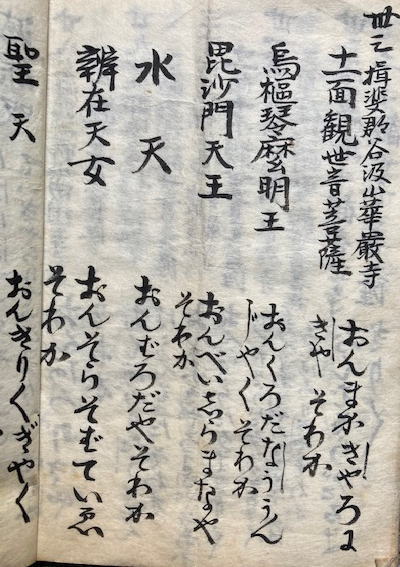 卅三揖斐郡谷汲山華嚴寺
十一面観世音菩薩
おんまかきやろに
きや そわか
烏樞琴麼明王
おんくろだなううん
じやくそわか
毘沙門天王
おんべいしらまなや
そわか
水天
おんばろだやそわか
辨在天女
おんそらそばていゑ
そわか
聖天
おんきりくぎやく